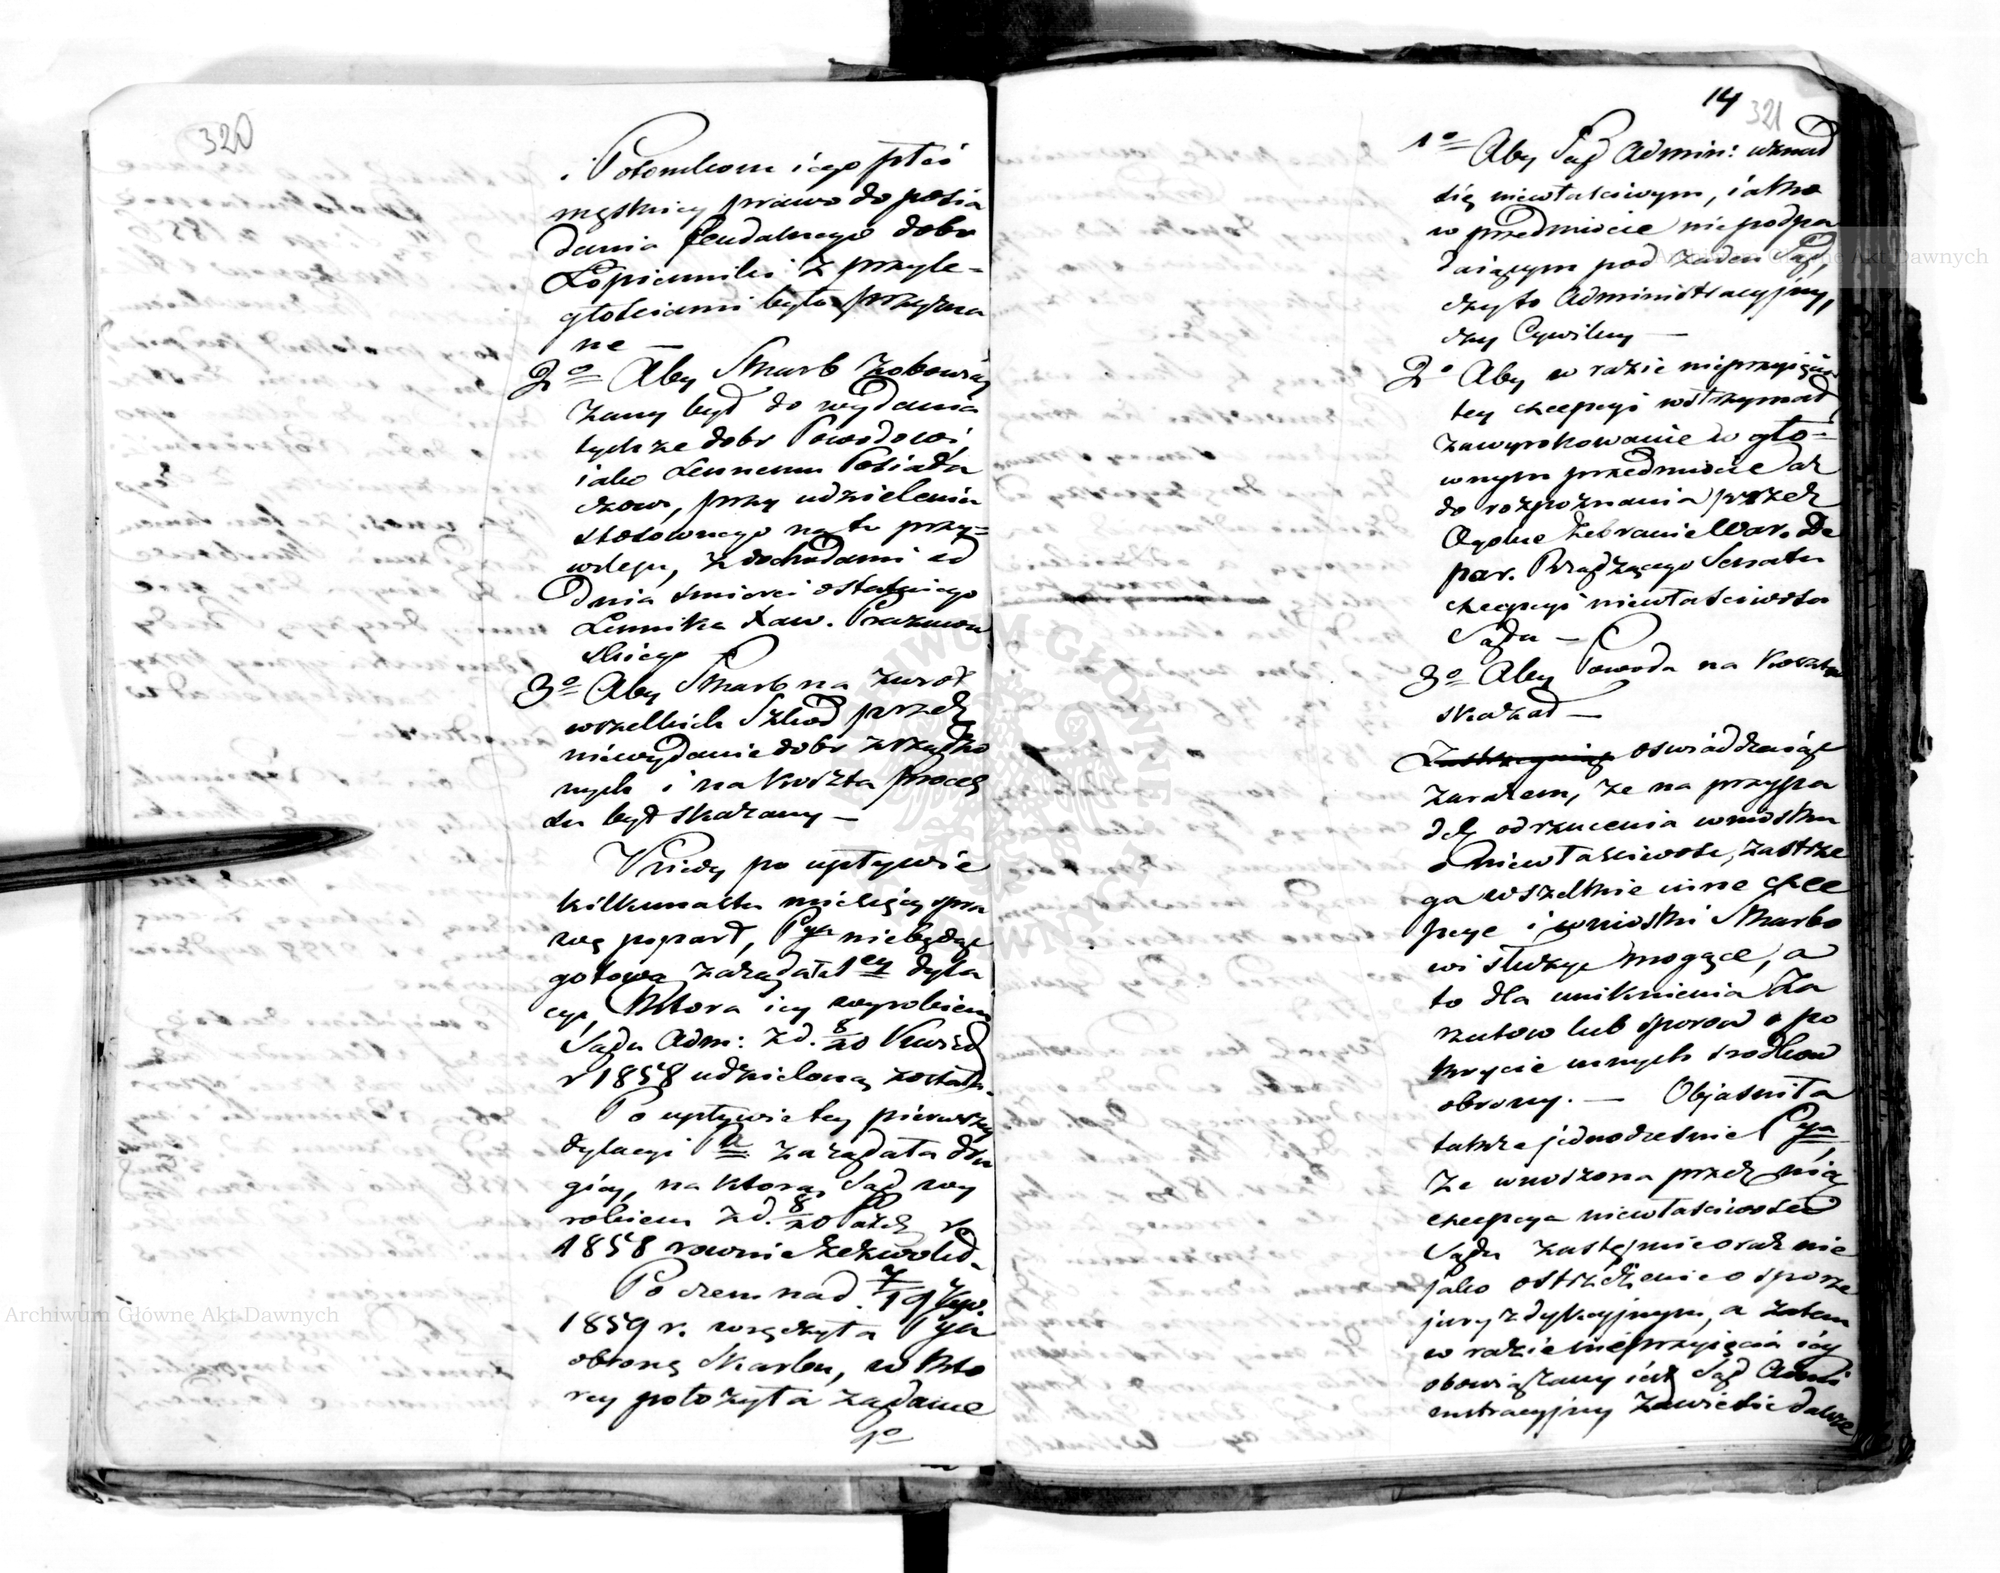 320
i Potomkom iego płci
męskiey prawo do posia
dania feudalnego dobr
Łopiennik z przyle=
głościami było przyzna
ne —
2º Aby Skarb zobowią
zany był do wydania
tychże dobr Powodowi,
iako Lennemu Posiada
czowi, przy udzieleniu
stosownego na to przy=
wileju, z dochodami od
dnia śmierci ostatniego
Lennika Xaw. Prażmow
skiego —
3º Aby Skarb na zwrot
wszelkich Szkod przez
niewydanie dobr zrządzo
nych i na koszta proces
su był skazany —
Kiedy po upływie
kilkunastu miesięcy spra
wę poparł, Pya niebędąc
gotową zażądała 1ey dyla
cyi, ktora iey wyrokiem
Sądu Adm: z d. 8/20 Kwiet
r 1858 udzieloną została.
Po upływie tey pierwszey
dylacyi Pa zażądała dru
giey, na ktorą Sąd wy
rokiem z d. 8/20 Paźdz r
1858 rownie zezwolił.
Po czem nad. 7/19 Kw.
1859 r. wręczyła Pya
obronę Skarbu, w kto
rey położyła żądanie
1º
14 321
1º Aby Sąd Admin: uznał
się niewłaściwym, iako
w przedmiocie niepodpa
daiącym pod żaden Sąd,
czyto Administracyjny,
czy Cywilny —
2º Aby w razie nieprzyięcia
tey excepcyi wstrzymał
zawyrokowanie w gło=
wnym przedmiocie aż
do rozpoznania przez
Ogolne Zebranie War. De
par. Rządzącego Senatu
excepcyi niewłaściwości
Sądu —
3º Aby Powoda na Koszta
skazał —
oświadczaiąc
zarazem, że na przypa
dek odrzucenia wniosku
o niewłaściwość, zastrze
ga wszelkie inne exce
pcye i wnioski Skarbo
wi służyć mogące, a
to dla uniknienia za
rzutow lub sporow o po
krycie innych srodkow
obrony. — Objaśniła
także jednocześnie Pya,
że wnoszona przez nią
excepcya niewłaściwości
Sądu zastępuie oraz nie
jako ostrzeżenie o sporze
juryzdykcyjnym, a zatem
w razie nieprzyięcia iey
obowiązany iest Sąd Admi
nistracyjny zawiesić dalsze
Archiwum Główne Akt Dawnych
Archiwum Główne Akt Dawnych
ARCHIWUM GŁÓWNE AKT DAWNYCH